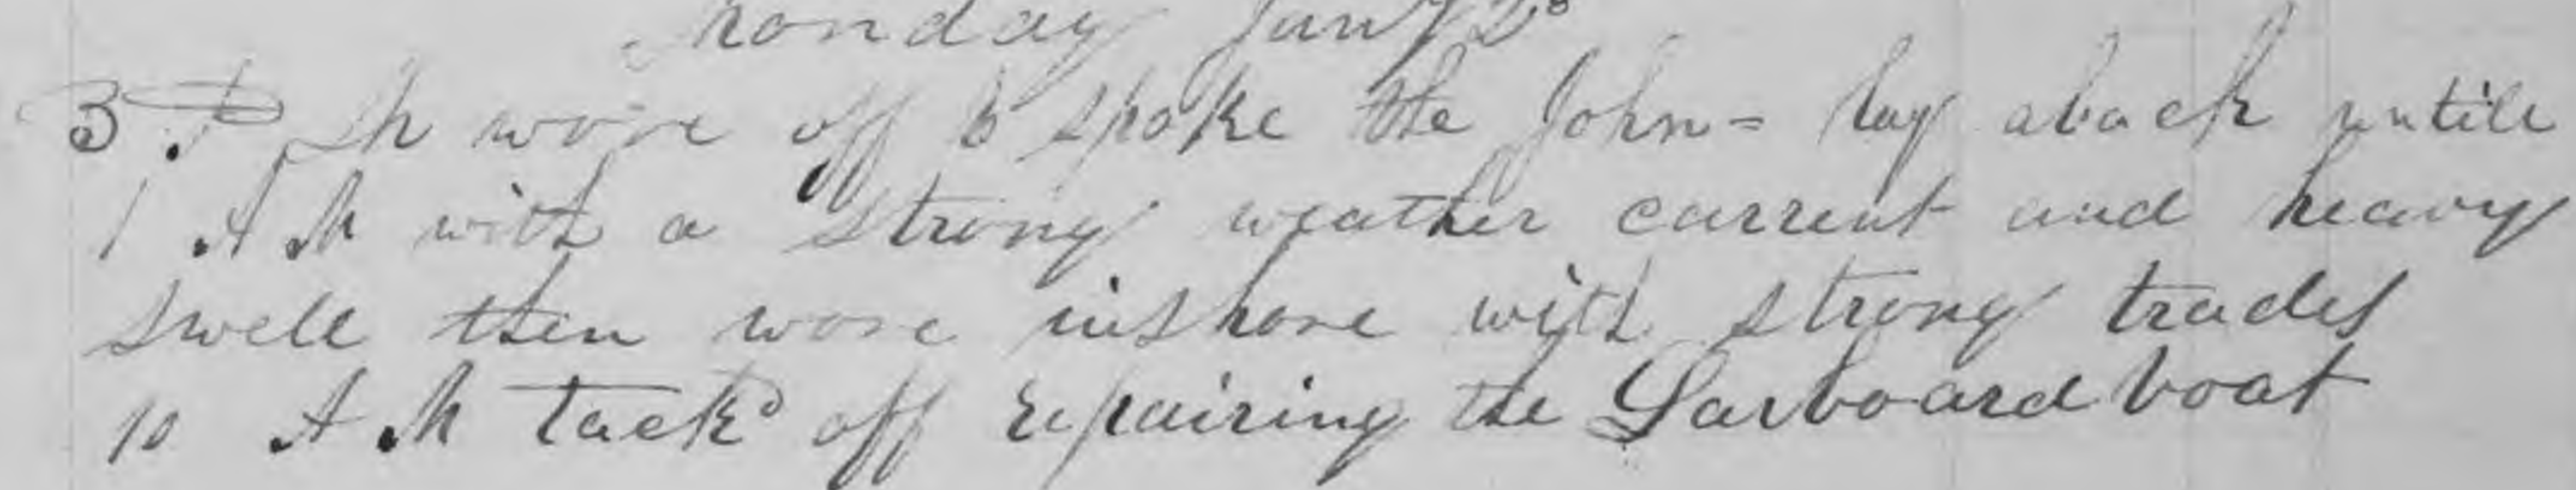 Monday Jany 2d
3 P M wore off & spoke the John = lay aback untill
1 A M with a strong weather current and heavy
swell then wore inshore with strong trades
10 A M tackd off repairing the Larboard boat